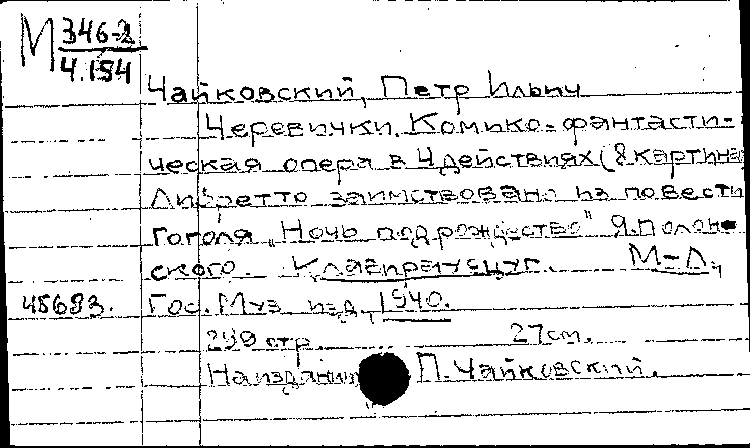 М 346-2
4.154
Чайковский, Петр Ильич
Черевички. Комико-фантасти-
ческая опера в 4 действиях (8 картинах
Либретто заимствовано из повести
Гоголя „Ночь под рождество" Я. Полон-
ского. Клавираусцуг. М-Л.,
45693. Гос. Муз. изд., 1940.
299 стр. 27 см.
На издании П. Чайковский.